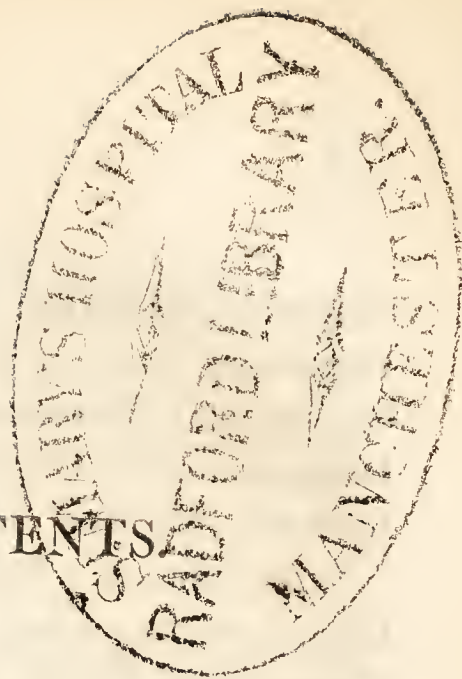 ST MARY'S HOSPITAL
RADFORD LIBRARY
MANCHESTER.
TENTS.